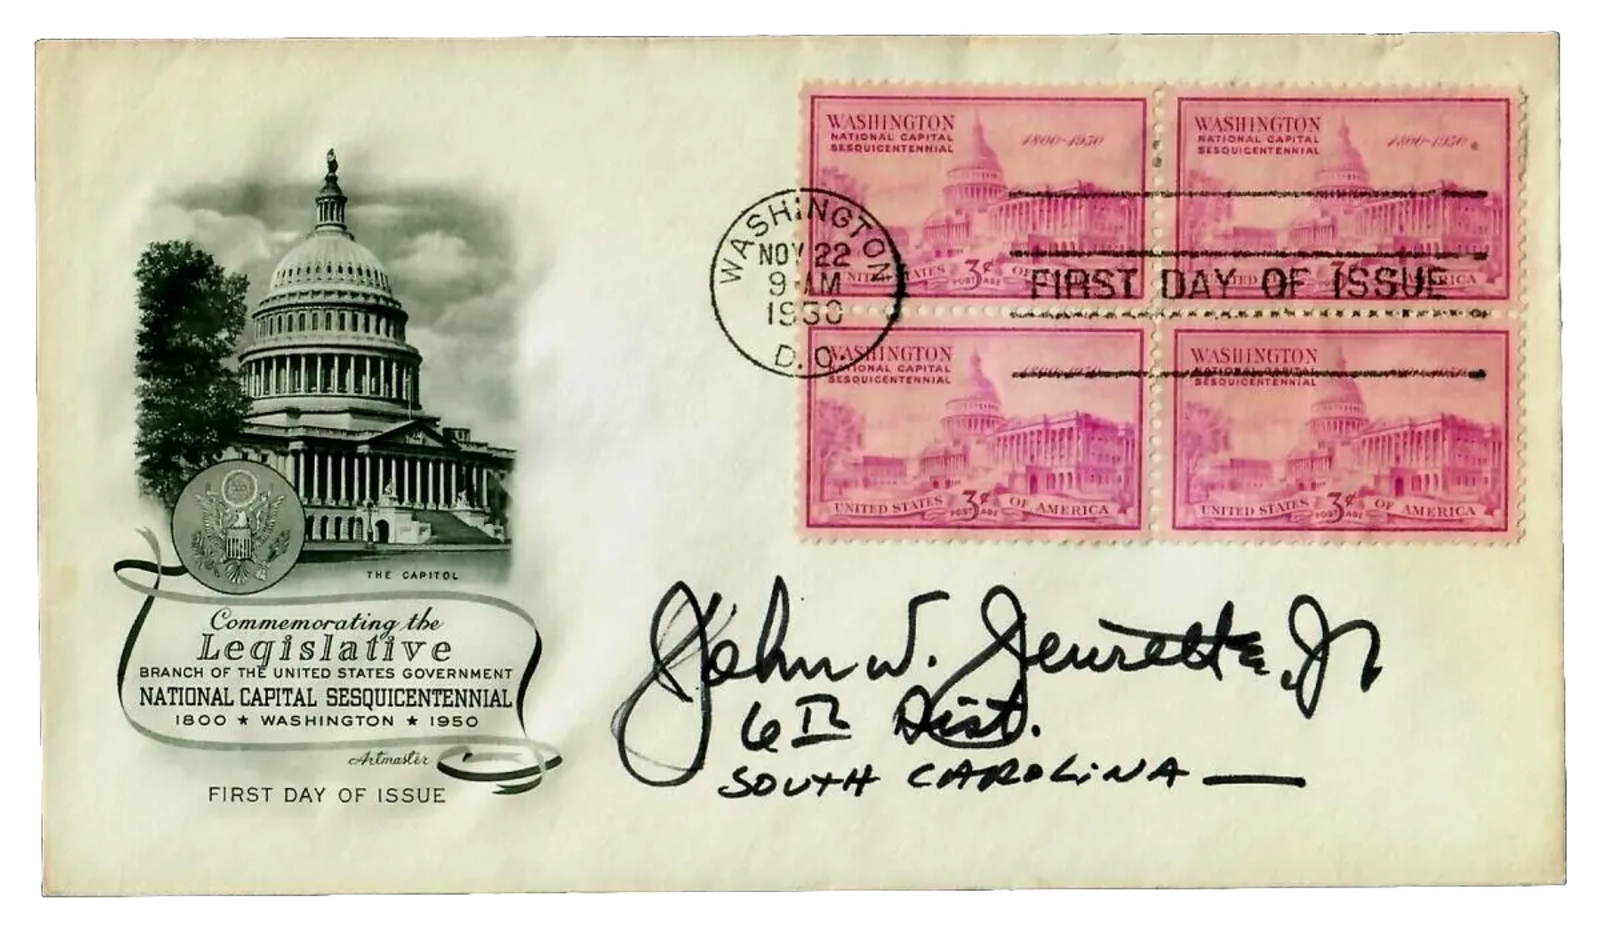 THE CAPITOL
Commemorating the
Legislative
BRANCH OF THE UNITED STATES GOVERNMENT
NATIONAL CAPITAL SESQUICENTENNIAL
1800 ★ WASHINGTON ★ 1950
Artmaster
FIRST DAY OF ISSUE
WASHINGTON
NATIONAL CAPITAL
SESQUICENTENNIAL
1800-1950
UNITED STATES 3¢ OF
POSTAGE
WASHINGTON
NATIONAL CAPITAL
SESQUICENTENNIAL
1800-1950
WASHINGTON
NOV 22
9-AM
1950
D.C.
FIRST DAY OF ISSUE
WASHINGTON
NATIONAL CAPITAL
SESQUICENTENNIAL
UNITED STATES 3¢ OF AMERICA
POSTAGE
WASHINGTON
NATIONAL CAPITAL
SESQUICENTENNIAL
UNITED STATES 3¢ OF AMERICA
POSTAGE
John W. Jenrette, Jr
6th Dist.
SOUTH CAROLINA —